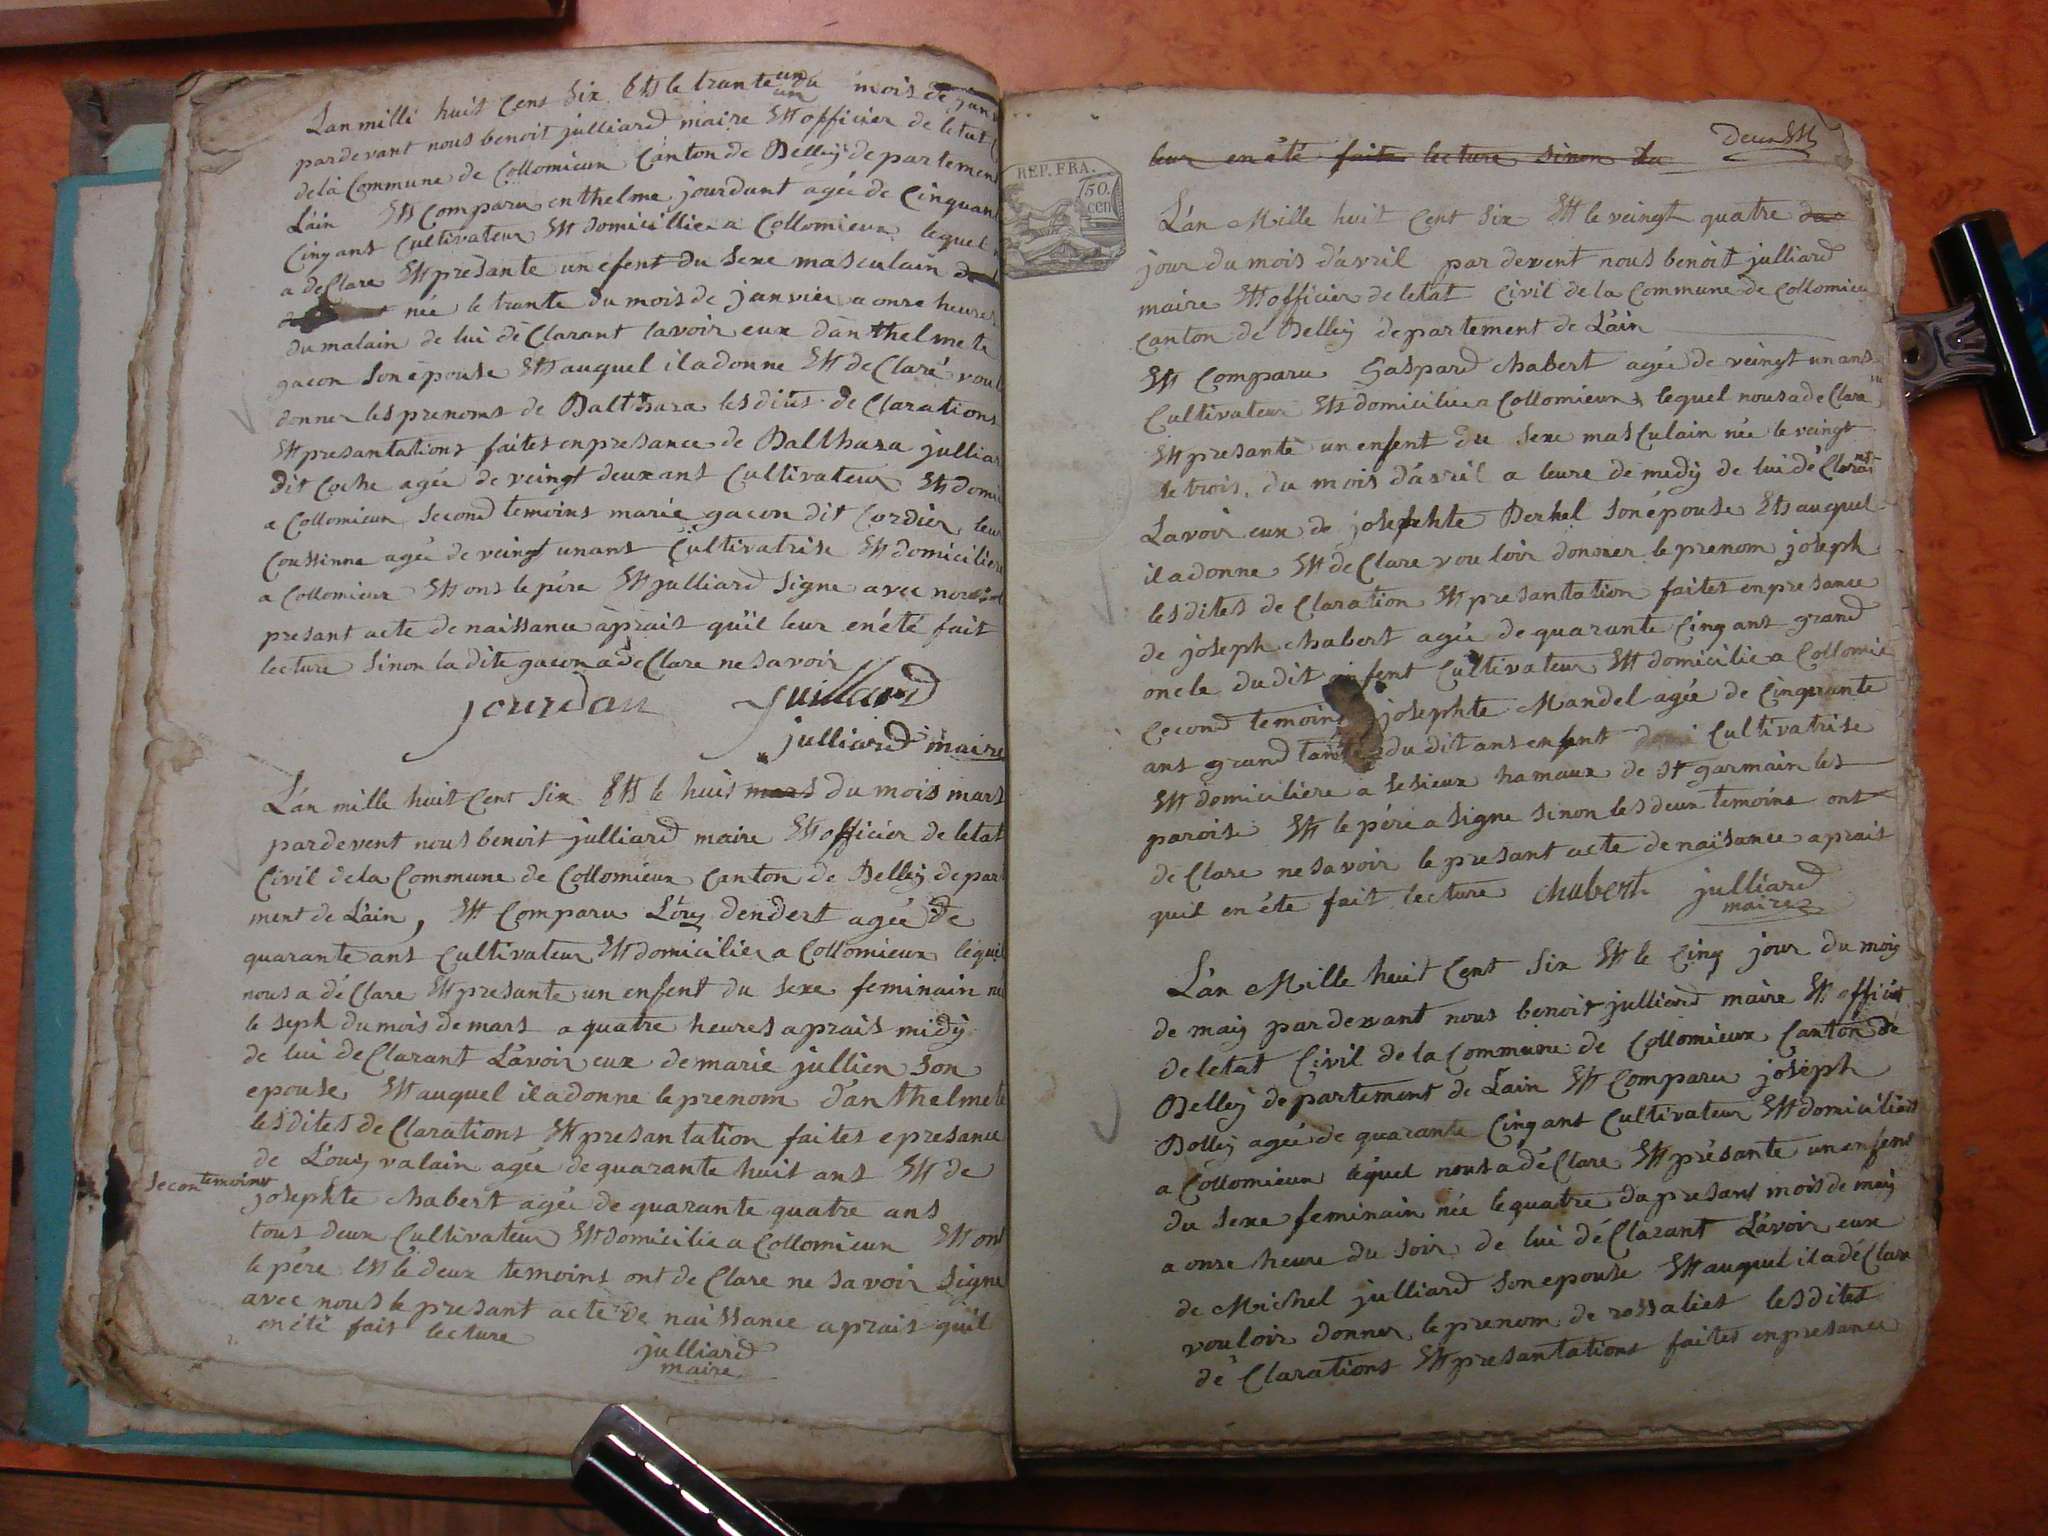 Lan mille huit Cens Six Est le trante un du mois de janv
pardevant nous benoit julliard maire Et officier de letat
de la Commune de Collomieux Canton de Belley departement
Lain Est Comparu enthelme jourdant agée de Cinquant
Cinq ans Cultivateur Et domicillier a Collomieux lequel
a de Clare Et présante un efent du Sexe masculain
née le trante du mois de janvier a onse heures
du matain de lui dé Clarant lavoir eux danthelmete
gacon Son épouse Et auquel il a donne Et de Claré voul
donner les prenoms de Balthasa les dites de Clarations
Et presantations faites en presance de Balthasa julliar
dit Coche agée de veingt deux ans Cultivateur Et domi
a Collomieux Second temoins marie gacon dit Cordier leur
Coussinne agée de veingt un ans Cultivatrise Et domiciliere
a Collomieux Et ont le pére Et julliard Signe avec nous
presant acte de naissance aprais quil leur en été fait
lecture Sinon la dite gacon a de Clare ne savoir
jourdan Juilliard
julliard maire
Lan mille huit Cent Six Est le huit mars du mois mars
pardevent nous benoit julliard maire Et officier de letat
Civil de la Commune de Collomieux Canton de Belley depar
ment de Lain, Est Comparu Louy dendert agée de
quarante ans Cultivateur Et domicilier a Collomieux lequel
nous a dé Clare Et presante un enfent du Sexe feminain né
le Seph du mois de mars a quatre heures aprais midy
de lui de Clarant Lavoir eux de marie jullien Son
epouse Et auquel il a donne le prenom danthelmete
les dites de Clarations Et presantation faites epresance
de Louy valain agée de quarante huit ans Et de
Secon temoins josephte Chabert agée de quarante quatre ans
tous deux Cultivateur Et domicilie a Collomieux Et ont
le pére Est le deux temoins ont de Clare ne savoir Signe
avec nous le presant acte de naissance aprais quil
en été fait lecture
julliard
maire
REP. FRA.
50.
cen
leur en été faite lecture Sinon la
Deux Et
Lan Mille huit Cent Six Et le veingt quatre
jour du mois davril pardevent nous benoit julliard
maire Et officier de letat Civil de la Commune de Collomieu
Canton de Belley departement de Lain
Est Comparu Gaspard Chabert agée de veingt un ans
Cultivateur Et domicilie a Collomieux lequel nous a de Clara
Et presante un enfent du Sexe masCulain née le veingt
te trois du mois davril a leure de medy de lui dé Clarant
Lavoir eux de josephte Berhel Son épouse Et auquel
il a donne Et de Clare vouloir donner le prenom joseph
les dites de Claration Et presantation faites en presance
de joseph Chabert agée de quarante Cinq ans grand
oncle du dit enfent Cultivateur Et domicilie a Collomie
Cecond temoins josephte Mandel agée de Cinquante
ans grand tante du dit ans enfent Cultivatrise
Et domiciliere a Lesieux hamaux de St garmain les
paroise Et le pére a Signe Sinon les deux temoins ont
de Clare ne savoir le presant acte de naisance aprais
quil en éte fait lecture Chabert julliard
maire
Lan Mille huit Cent Six Et le Cinq jour du moy
de maiy pardevant nous benoit julliard maire Et officier
de letat Civil de la Commune de Collomieux Canton de
Belley departement de Lain Est Comparu joseph
Bolley agée de quarante Cinq ans Cultivateur Et domicilier
a Collomieux léquel nous a dé Clare Et présante un enfent
du Sexe feminain née le quatre du presant mois de maiy
a onse heure du Soir de lui dé Clarant Lavoir eux
de Michel julliard Son epouse Et auquel il a dé Clare
vouloir donner le prenom de rossaliet les dites
dé Clarations Et presantations faites en presance